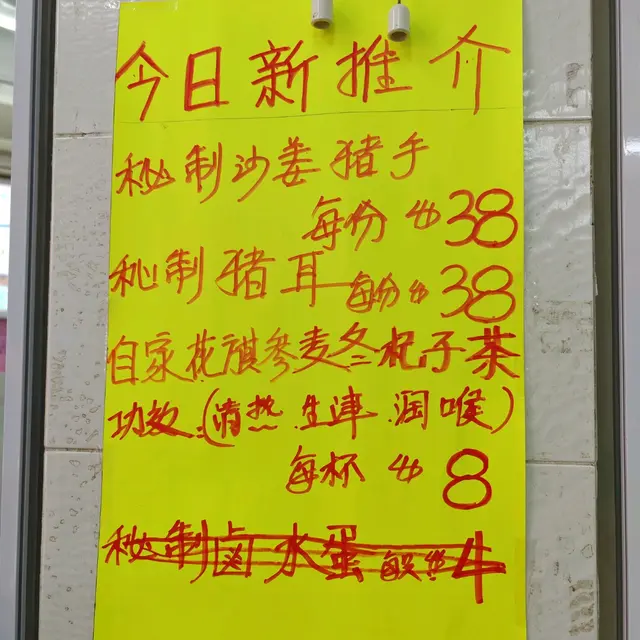 今日新推介
秘制沙姜猪手
每份 $38
秘制猪耳 每份$38
自家花旗参麦冬杞子茶
功效(清热 生津 润喉)
每杯 $8
秘制卤水蛋 每只$4